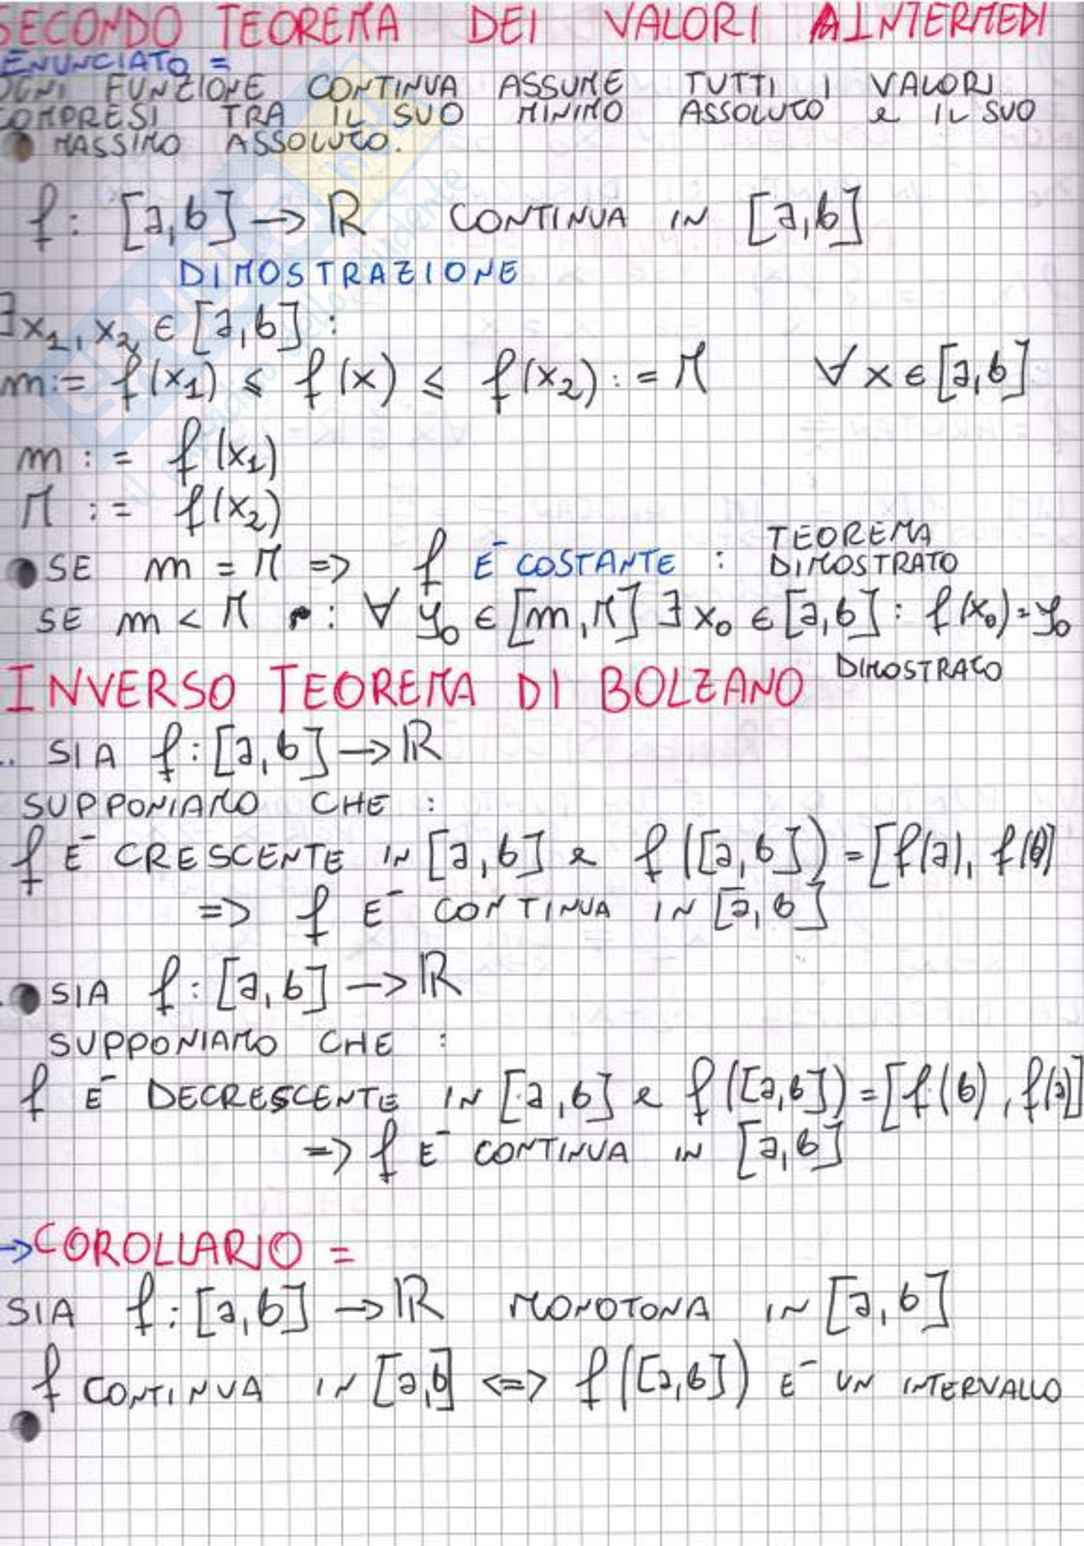 SECONDO TEOREMA DEI VALORI INTERMEDI
ENUNCIATO =
OGNI FUNZIONE CONTINUA ASSUME TUTTI I VALORI
COMPRESI TRA IL SUO MINIMO ASSOLUTO e IL SUO
MASSIMO ASSOLUTO.
f: [a,b] → ℝ CONTINUA IN [a,b]
DIMOSTRAZIONE
∃x₁, x₂ ∈ [a,b] :
m:= f(x₁) ≤ f(x) ≤ f(x₂) := M ∀ x ∈ [a,b]
m := f(x₁)
M := f(x₂)
SE m = M => f È COSTANTE : TEOREMA DIMOSTRATO
SE m < M : ∀ y₀ ∈ [m,M] ∃ x₀ ∈ [a,b] : f(x₀)=y₀
DIMOSTRATO
INVERSO TEOREMA DI BOLZANO
SIA f:[a,b] → ℝ
SUPPONIAMO CHE :
f È CRESCENTE IN [a,b] e f([a,b])=[f(a), f(b)]
=> f È CONTINUA IN [a,b]
SIA f:[a,b] → ℝ
SUPPONIAMO CHE :
f È DECRESCENTE IN [a,b] e f([a,b])=[f(b), f(a)]
=> f È CONTINUA IN [a,b]
→ COROLLARIO =
SIA f:[a,b] → ℝ MONOTONA IN [a,b]
f CONTINUA IN [a,b] <=> f([a,b]) È UN INTERVALLO